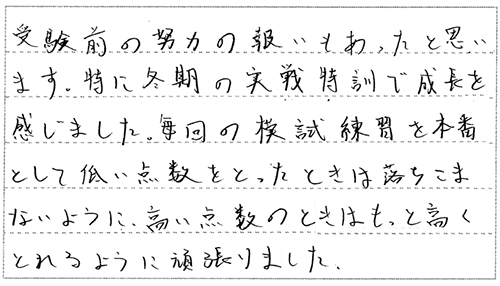 受験前の努力の報いもあったと思い
ます。特に冬期の実戦特訓で成長を
感じました。毎回の模試練習を本番
として低い点数をとったときは落ちこま
ないように、高い点数のときはもっと高く
とれるように頑張りました。